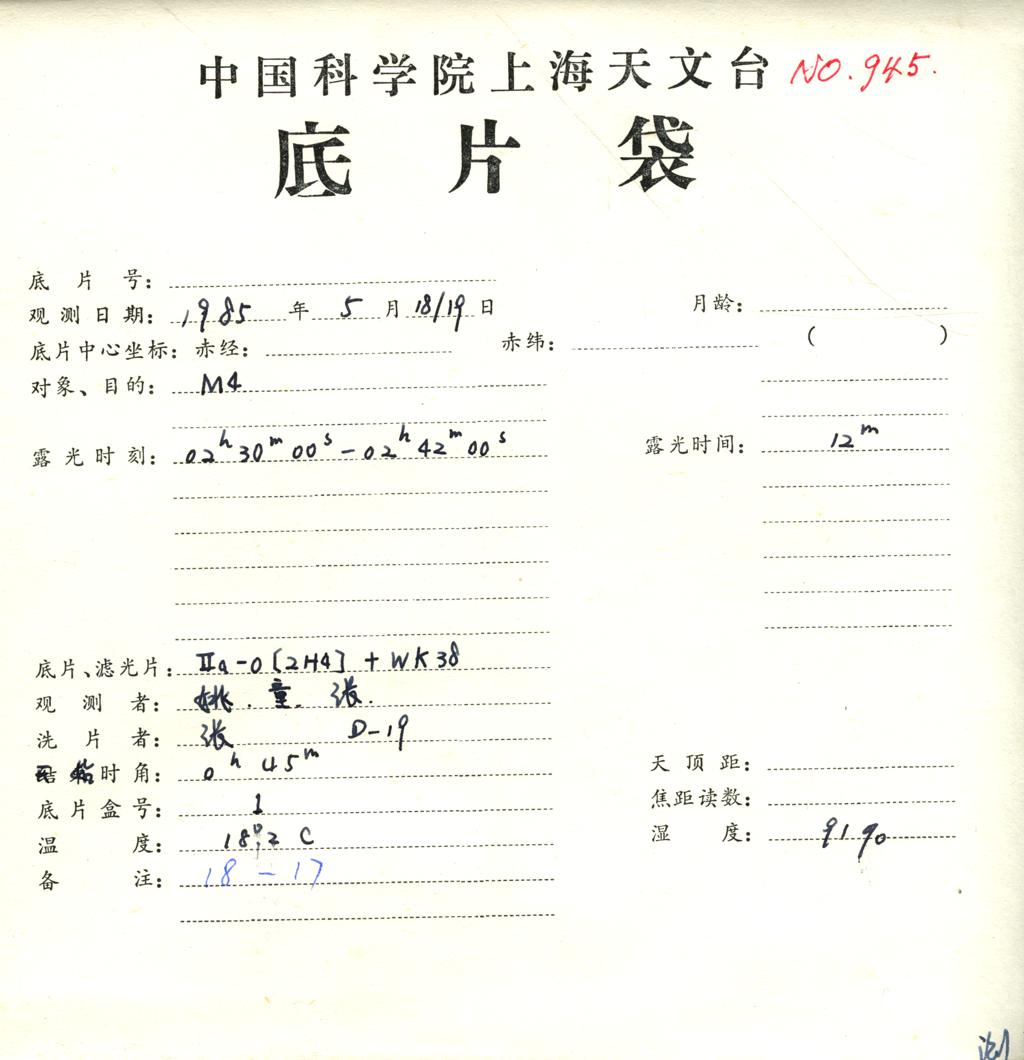 中国科学院上海天文台 NO.945.
底片袋
底片号：
观测日期：1985年5月18/19日 月龄：
底片中心坐标：赤经： 赤纬： ( )
对象、目的：M4
露光时刻：02h30m00s-02h42m00s 露光时间：12m
底片、滤光片：IIa-O[2H4]+WK38
观测者：姚.童.张.
洗片者：张 D-19
时角：0h45m 天顶距：
底片盒号：1 焦距读数：
温度：18°.2C 湿度：91%
备注：18-17